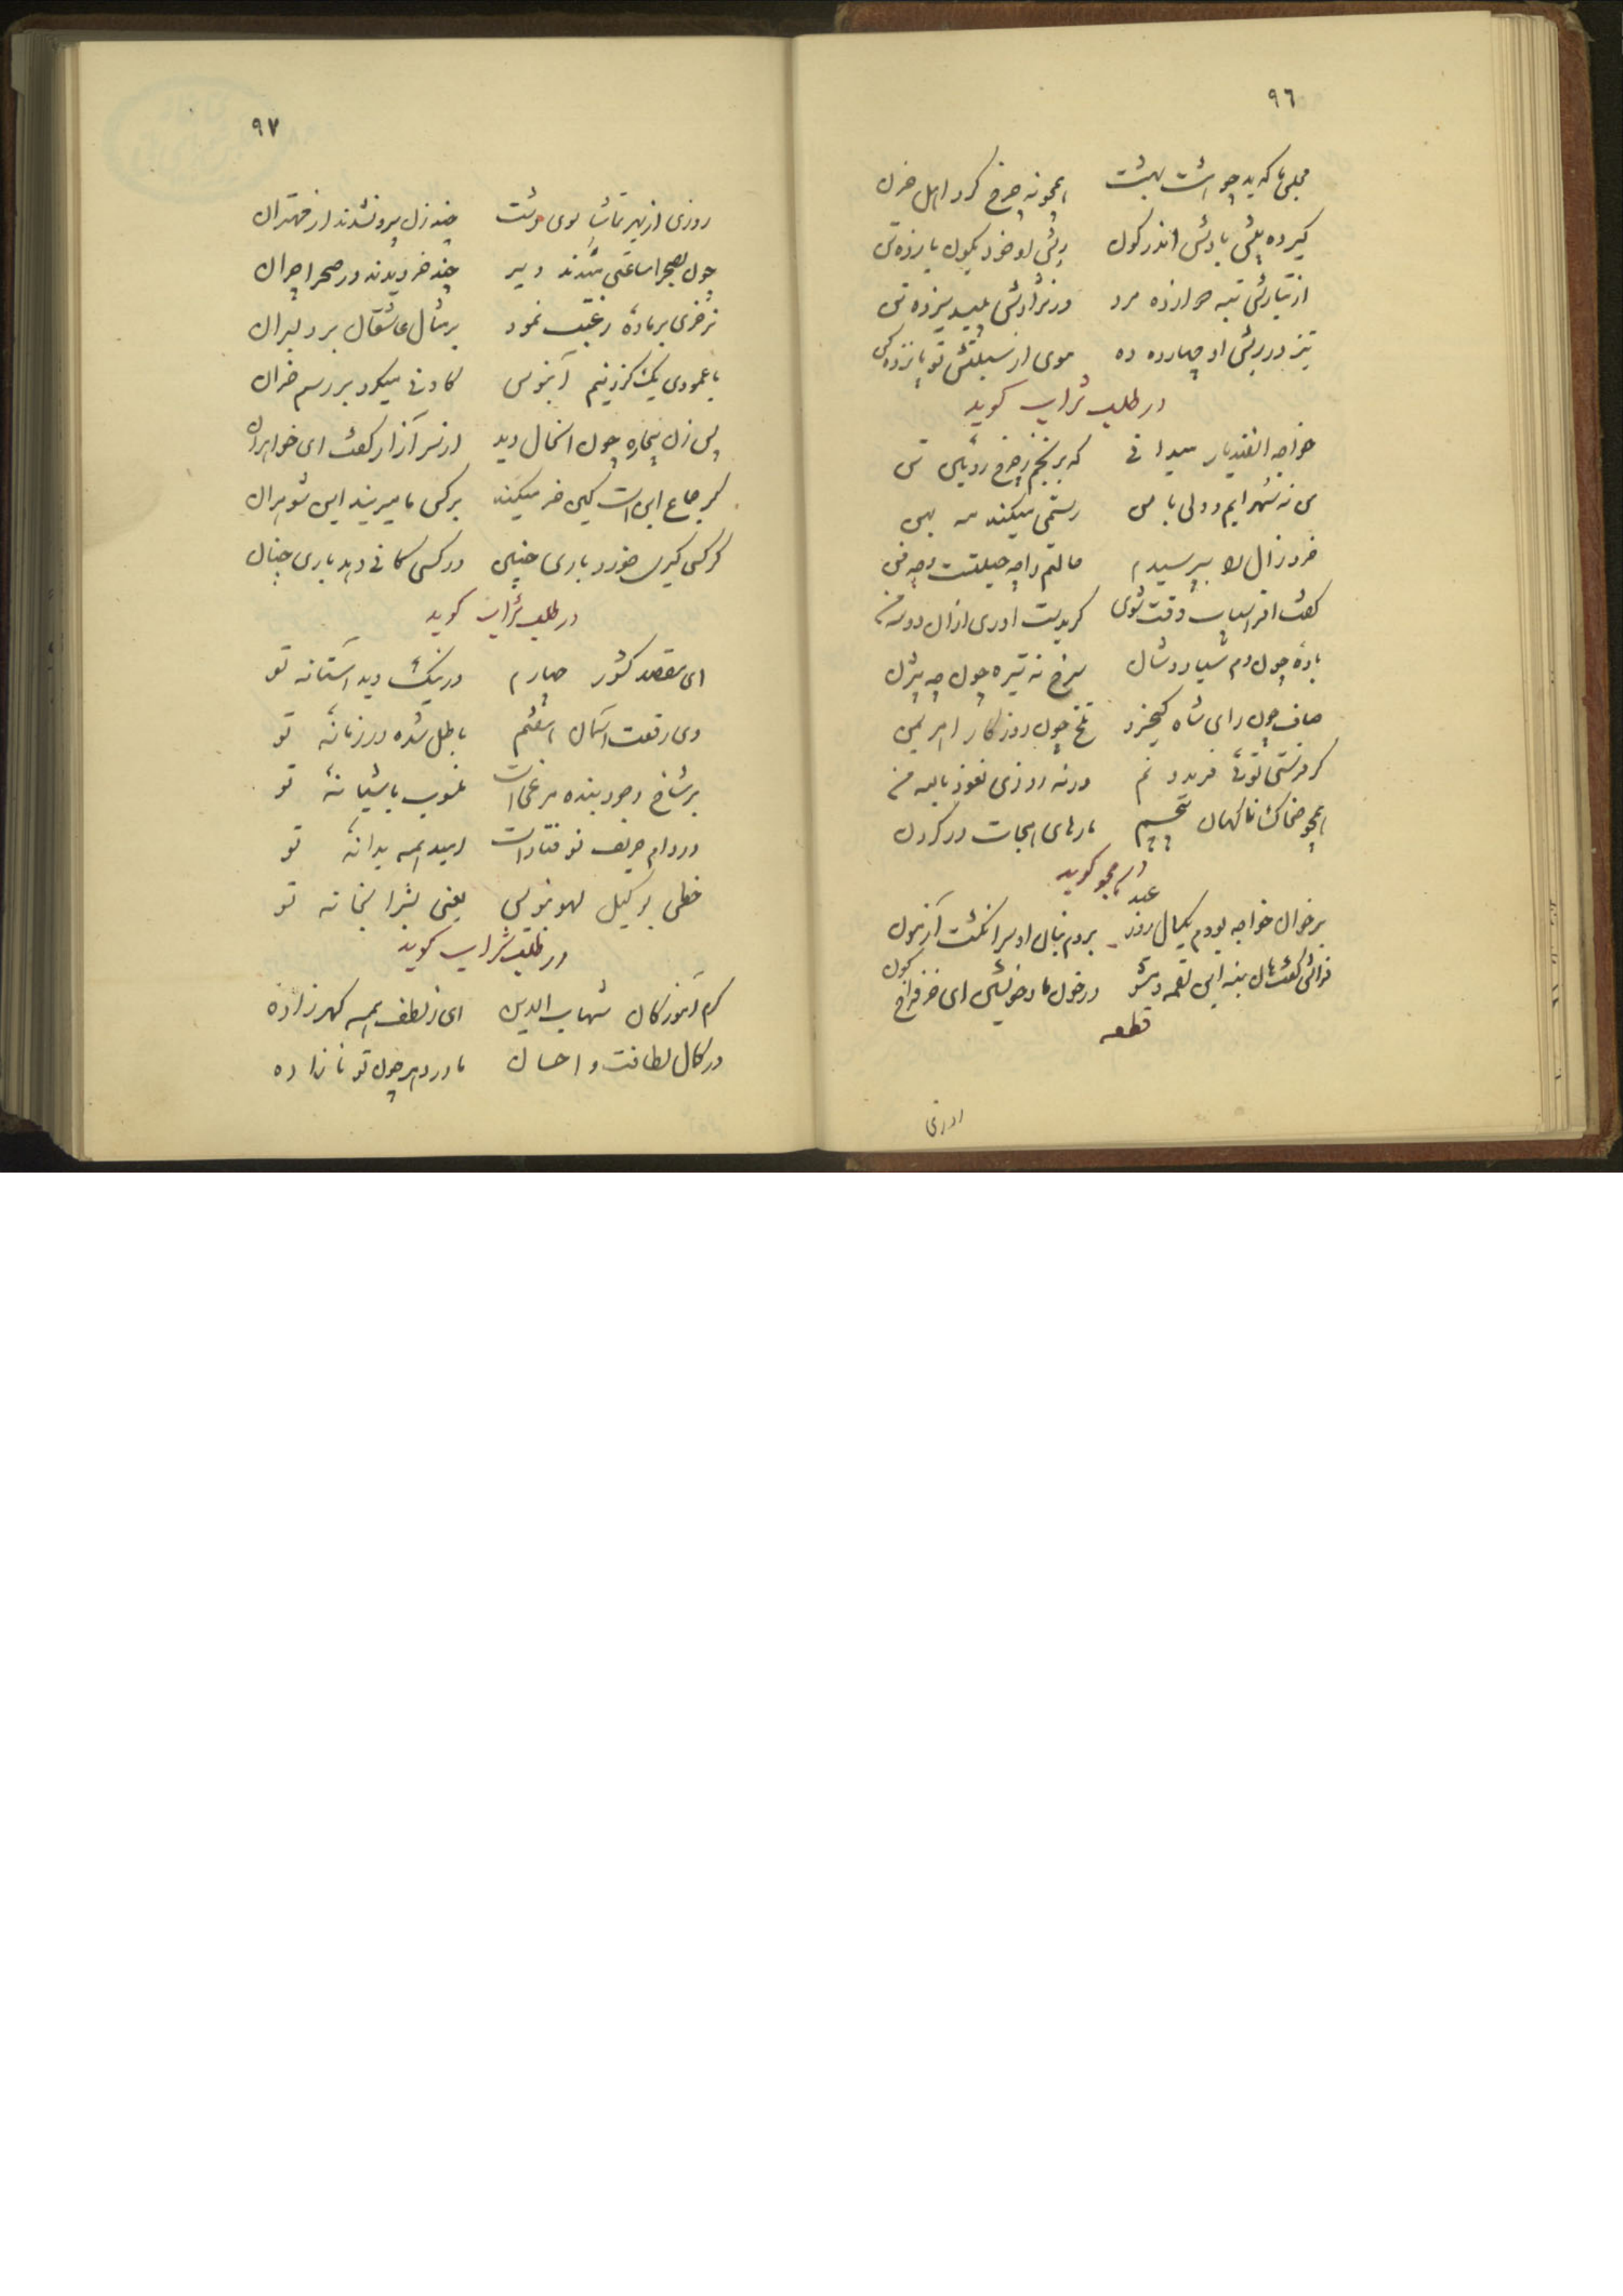 ٩٦
کیر ده پیش بادش اندر کون ریش او خود بکون یازده تن
از تبارش تبه دوازده مرد وز نژادش پلید سیزده تن
تیز در ریش او چهارده ده موی از سبلتش تو پانزده کن
در طلب شراب کوید
خواجه اسفندیار میدانی که برنجم ز چرخ روئین تن
من نه سهرابم و ولی با من رستمی میکند مه بهمن
خرد زال را بپرسیدم حالتم را چه حیلتست و چه فن
کفت افراسیاب وقت شوی کر بدست اوری ازان دو سه من
بادهٔ چون دم سیاوشان سرخ نه تیره چون چه بیژن
صاف چون رای شاه کیخسرو تلخ چون روزکار اهریمن
کر فرستی توئی فریدونم ورنه روزی نعوذ بالله من
همچو ضحاک ناکهان پیچم مارهای هجات در کردن
در هجو کوید
بر خوان خواجه بودم یکسال روز عید بردم بنان او سر انکشت آزمون
قطعه
٩٧
روزی از بهر تماشا سوی دشت چند زن بیرون شدند از مهتران
چون بصحرا ساعتی شدند دیر چند خر دیدند در صحرا چران
نر خری بر مادهٔ رغبت نمود بر مثال عاشقان بر دلبران
با عمودی یک کز و نیم آبنوس کادنی میکرد بر رسم خران
پس زن بیچاره چون انحال دید از سر آزار کفت ای خواهران
کر جماع این است کین خر میکند بر کس ما میریند این شوهران
کر کسی کیری خورد باری چنین ور کسی کانی دهد باری چنان
در طلب شراب کوید
ای مقصد کشور چهارم در نیک و بد آستانه تو
وی رفعت آسمان هشتم باطل شده در زمانهٔ تو
بر شاخ وجود بنده مرغیست منسوب باشیانهٔ تو
در دام حریف نو فتادست امید همه بدانهٔ تو
خطی بوکیل لهو بنویس یعنی بشرابخانه تو
در طلب شراب کوید
کرم آموزکان شهاب الدین ای ز لطف همه کهر زاده
در کمال لطافت و احسان مادر دهر چون تو نا زاده